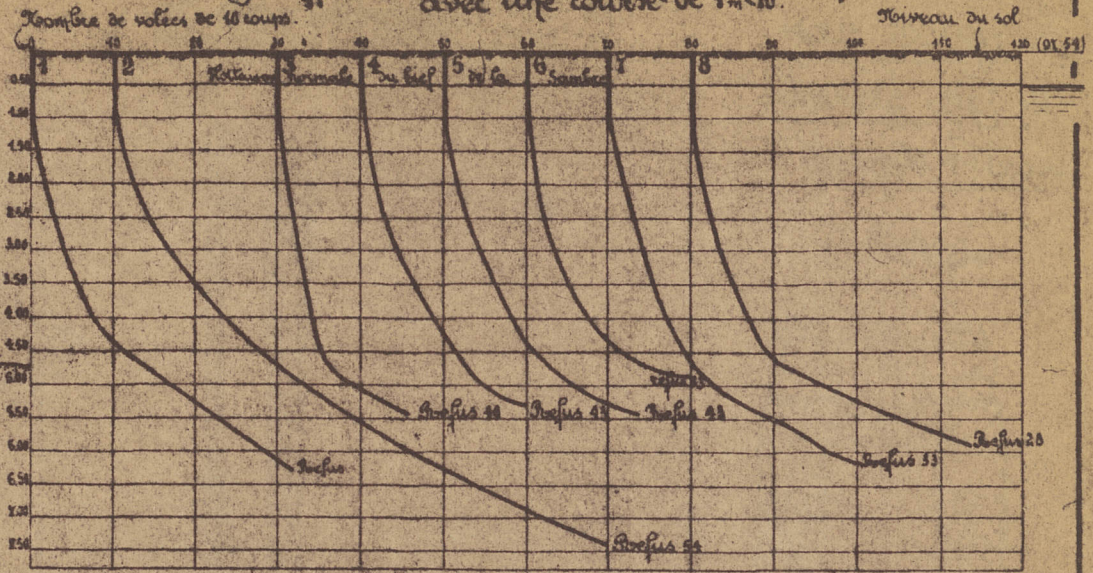 avec une course de 1m
Nombre de volées de 10 coups.
Niveau du sol
0 10 20 30 40 50 60 70 80 90 100 110 120 (or. 54)
1 2 3 4 5 6 7 8
Flottaison Normale du bief de la Sambre
0.50
1.00
1.50
2.00
2.50
3.00
3.50
4.00
4.50
5.00
Refus
Refus Refus Refus
5.50
Refus 28
6.00
Refus 53
Refus
6.50
7.00
Refus 54
7.50